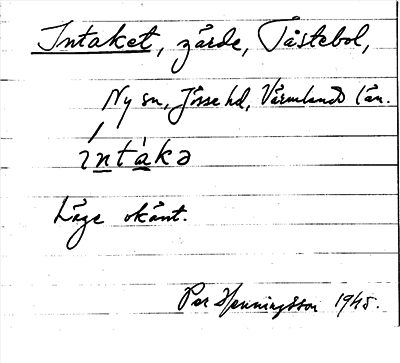 Intaket, gärde, Tåstebol,
Ny sn, Jösse hd, Värmlands län.
ìntákə
Läge okänt.
Per Henningsson 1945.